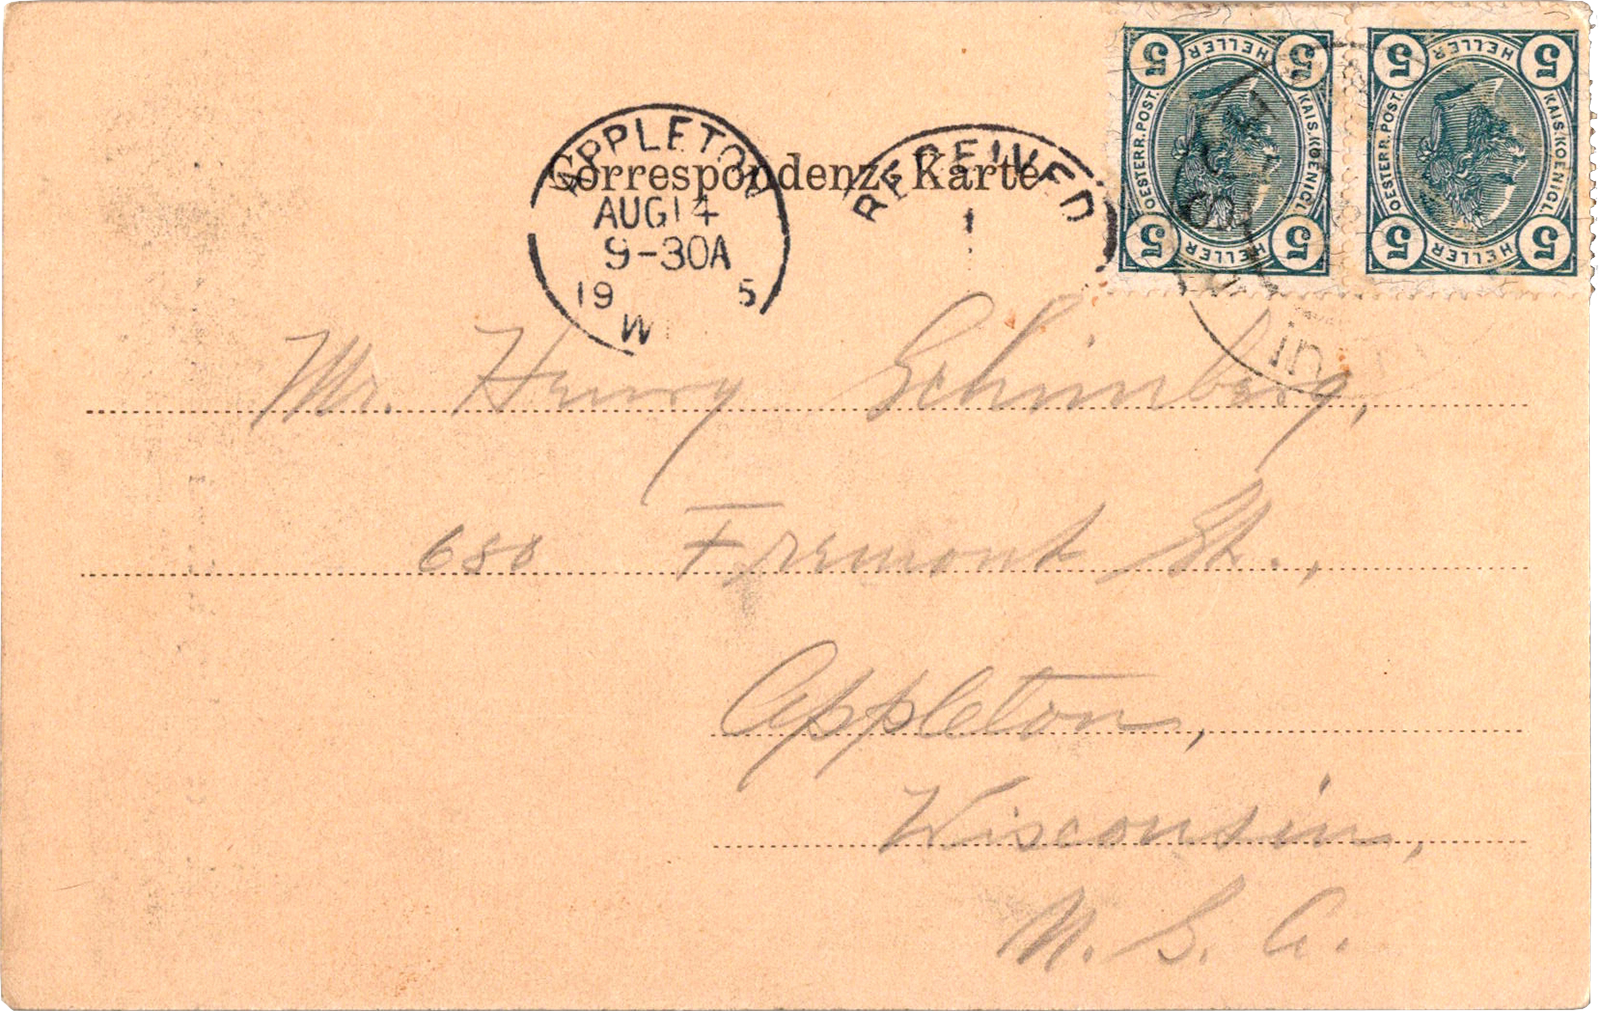 Correspondenz-Karte
APPLETON
AUG 14
9-30A
19 5
W
RECEIVED
5 HELLER 5
OESTERR. POST. KAIS. KOENIGL.
5 HELLER 5
5 HELLER 5
OESTERR. POST. KAIS. KOENIGL.
5 HELLER 5
Mr. Henry Schimberg,
680 Fremont St.,
Appleton,
Wisconsin,
U. S. A.